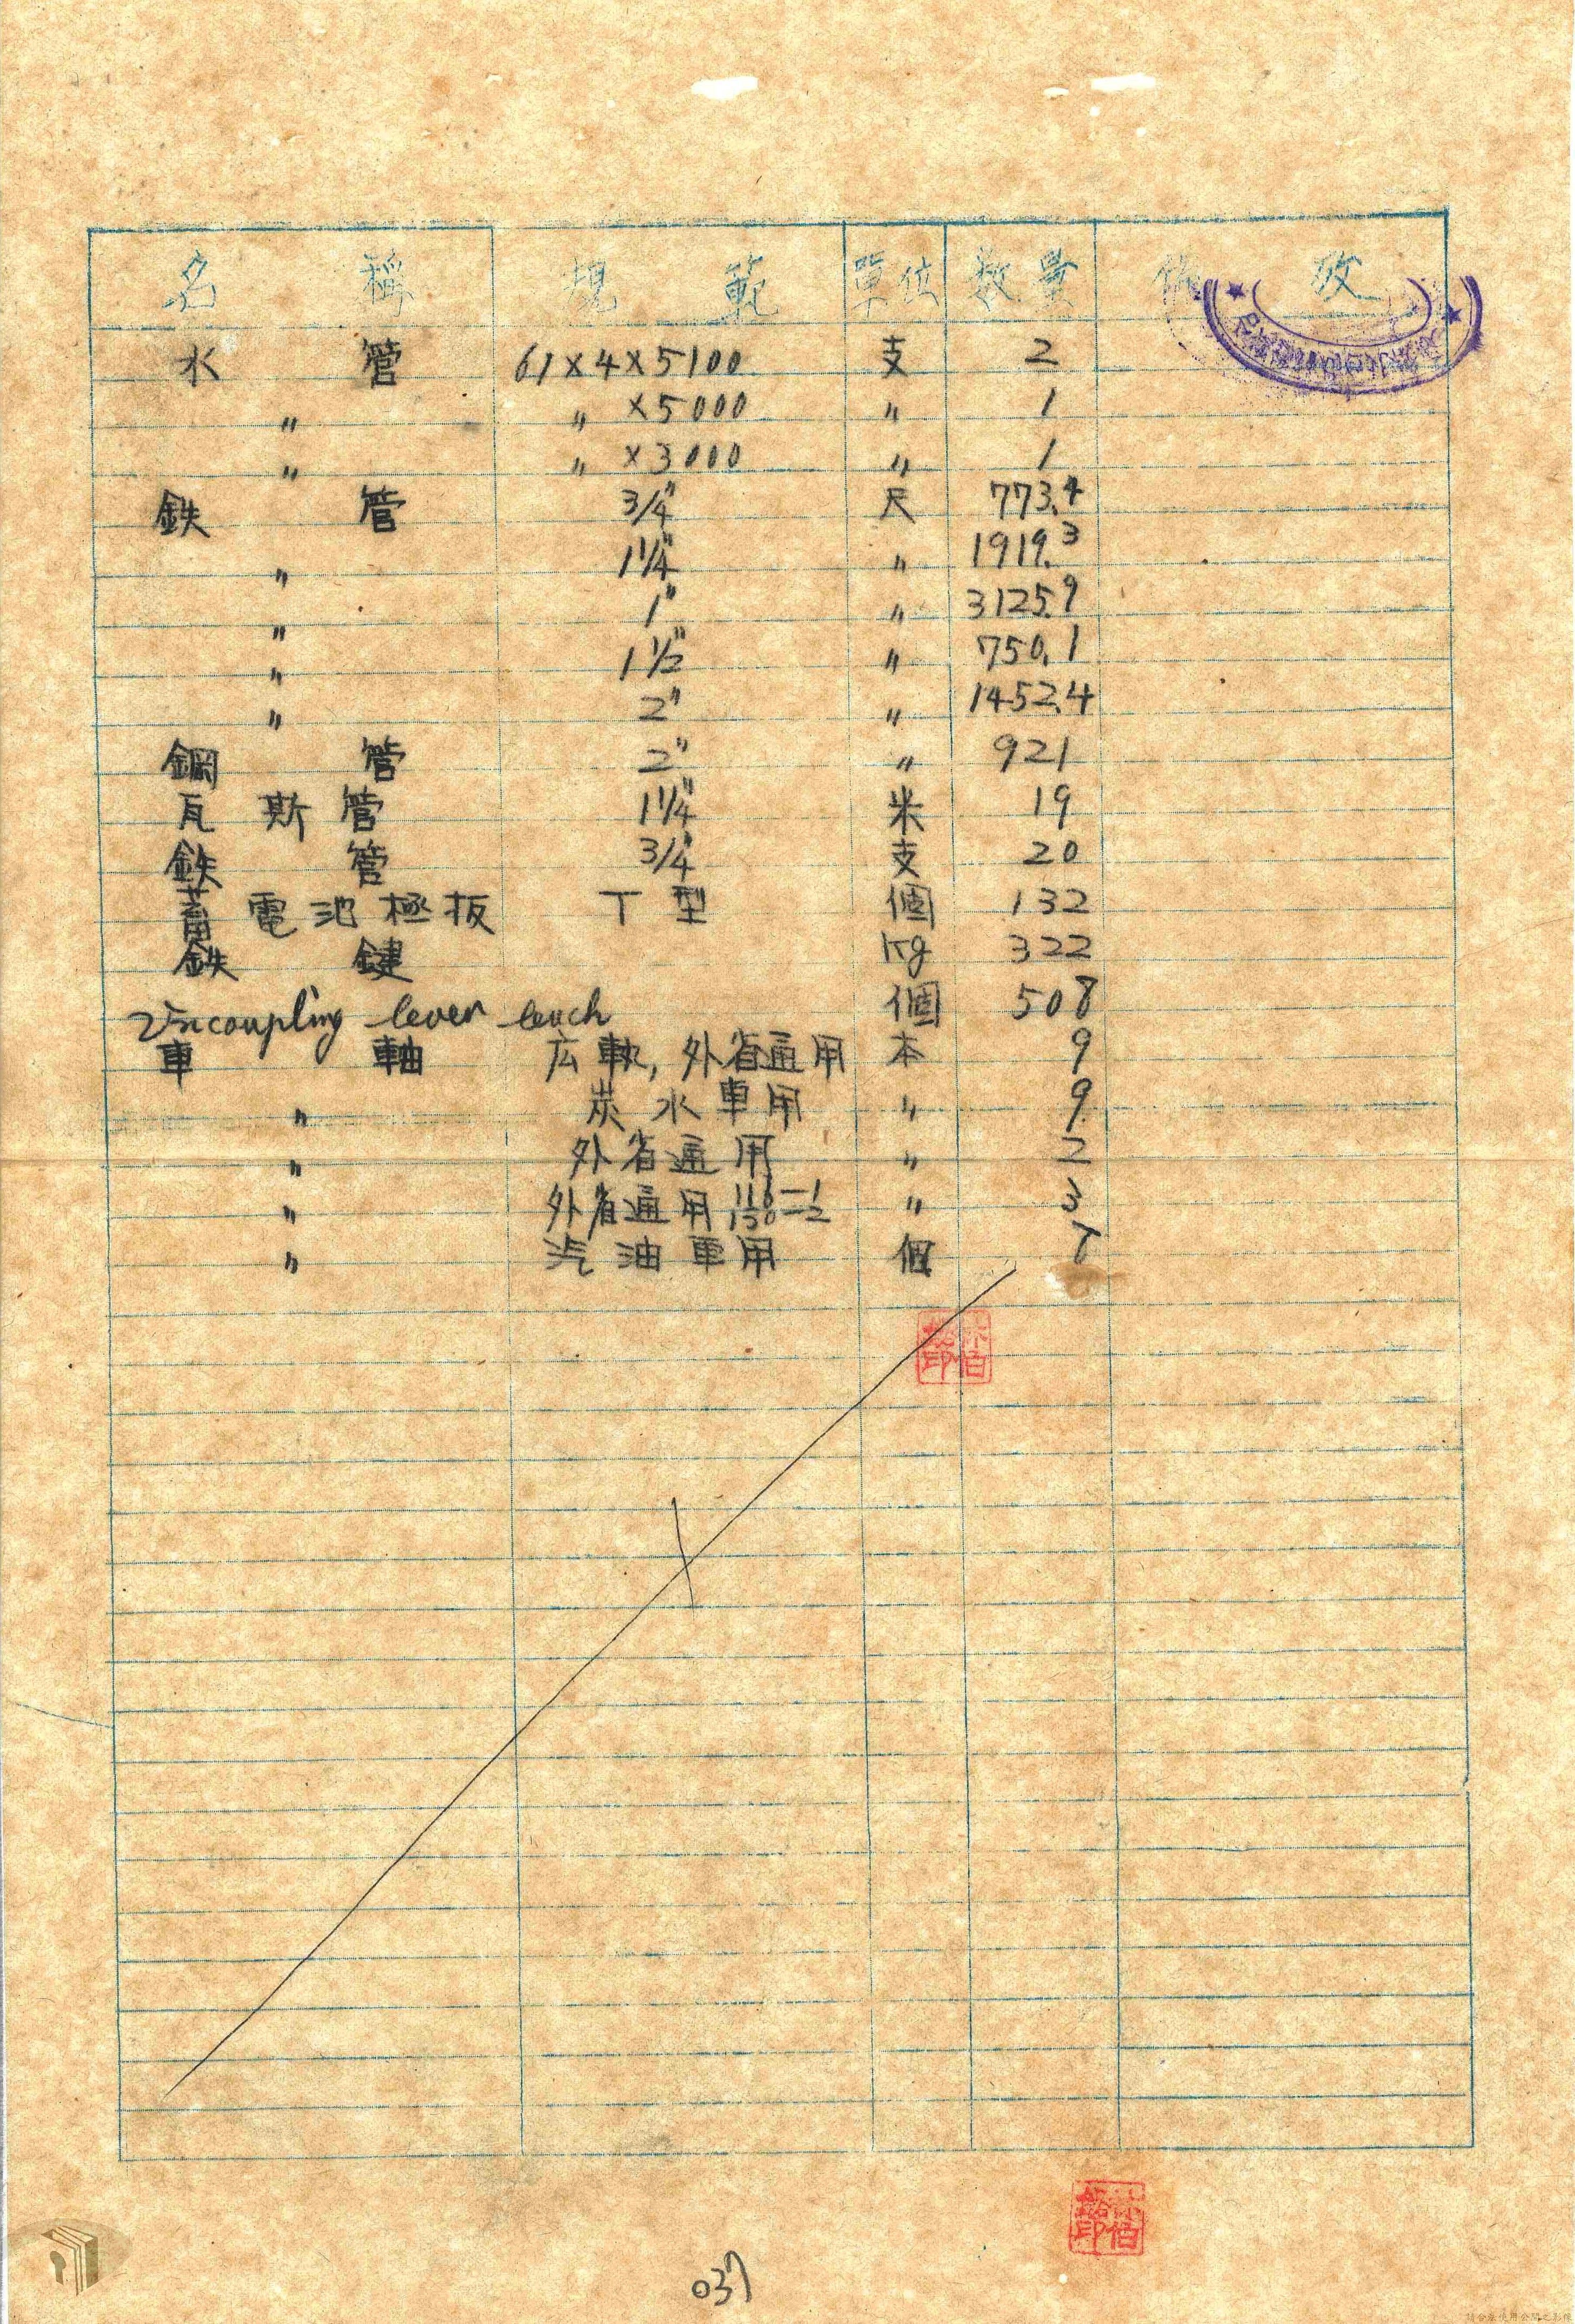 名稱 規範 單位 數量 備攷
水管 61×4×5100 支 2
〃 〃 ×5000 〃 1
〃 〃 ×3000 〃 1
鉄管 3/4" 尺 773.4
〃 1 1/4" 〃 1919.3
〃 1" 〃 3125.9
〃 1 1/2" 〃 750.1
〃 2" 〃 1452.4
鋼管 2" 〃 921
瓦斯管 1 1/4" 米 19
鉄管 3/4" 支 20
蓄電池極板 T型 個 132
鉄鍵 Kg 322
Uncoupling lever 個 508
車軸 広軌,外省通用 本 9
〃 炭水車用 〃 9
〃 外省通用 〃 2
〃 外省通用 110-1 150-2 〃 3
〃 汽油車用 個
037